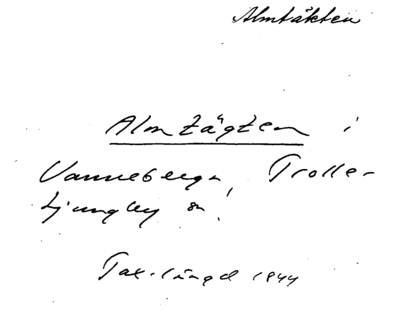 Almtäkten
Almtägten i
Vanneberga, Trolle-
ljungby sn.
Tax.längd 1944